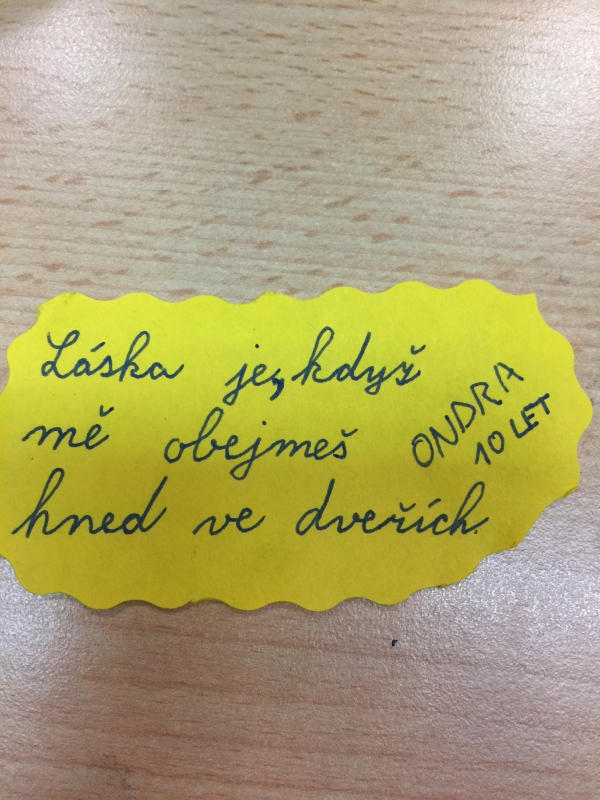 Láska je, když
mě obejmeš
hned ve dveřích.
ONDRA
10 LET